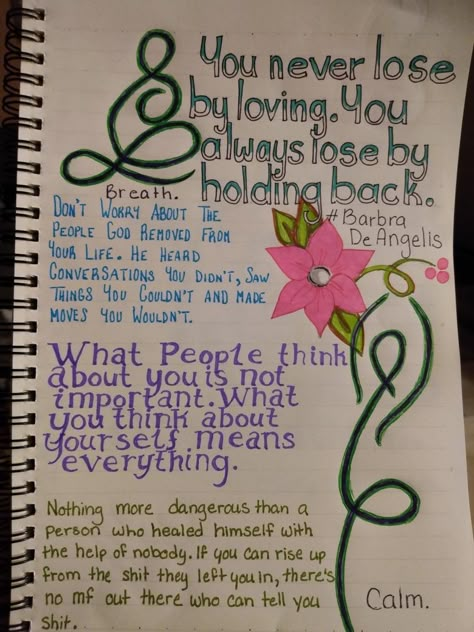 You never lose
by loving. You
always lose by
holding back.
#Barbra
De Angelis
Breath.
Don't Worry About The
People God Removed From
Your Life. He Heard
Conversations You Didn't, Saw
Things You Couldn't and made
moves You Wouldn't.
What People think
about you is not
important. What
you think about
yourself means
everything.
Nothing more dangerous than a
person who healed himself with
the help of nobody. If you can rise up
from the shit they left you in, there's
no mf out there who can tell you
shit.
Calm.